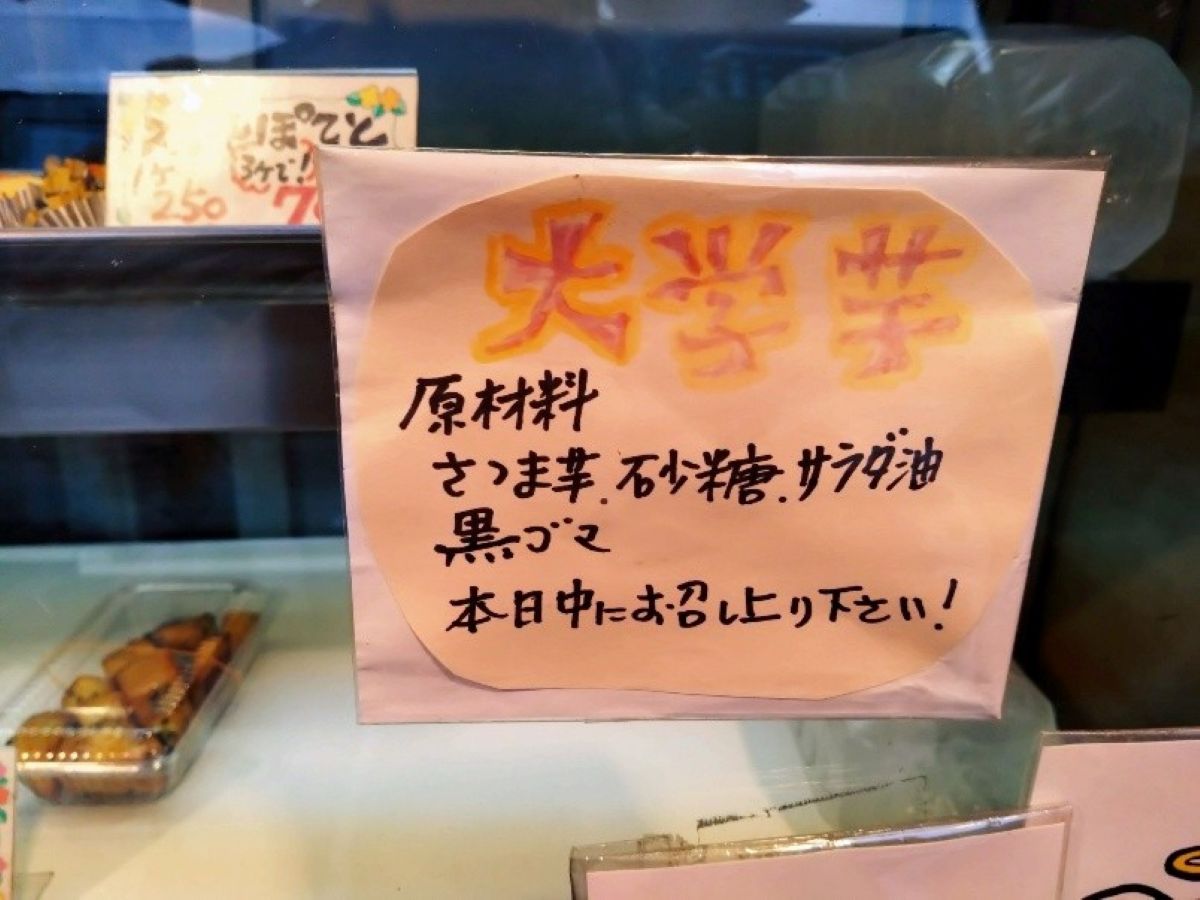 ぽてと
3ケで!
1ケ
250
大学芋
原材料
さつま芋、砂糖、サラダ油
黒ゴマ
本日中にお召し上り下さい!